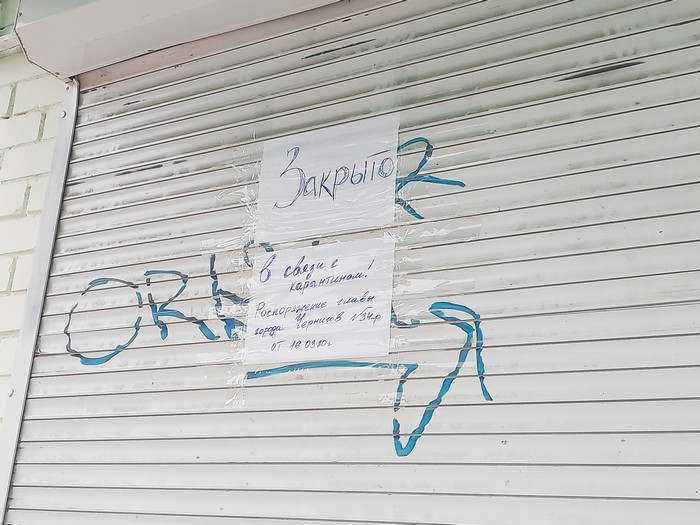 Закрыто
В связи с
карантином!
Распоряжение главы
города Чернигов
от 16.03.20г